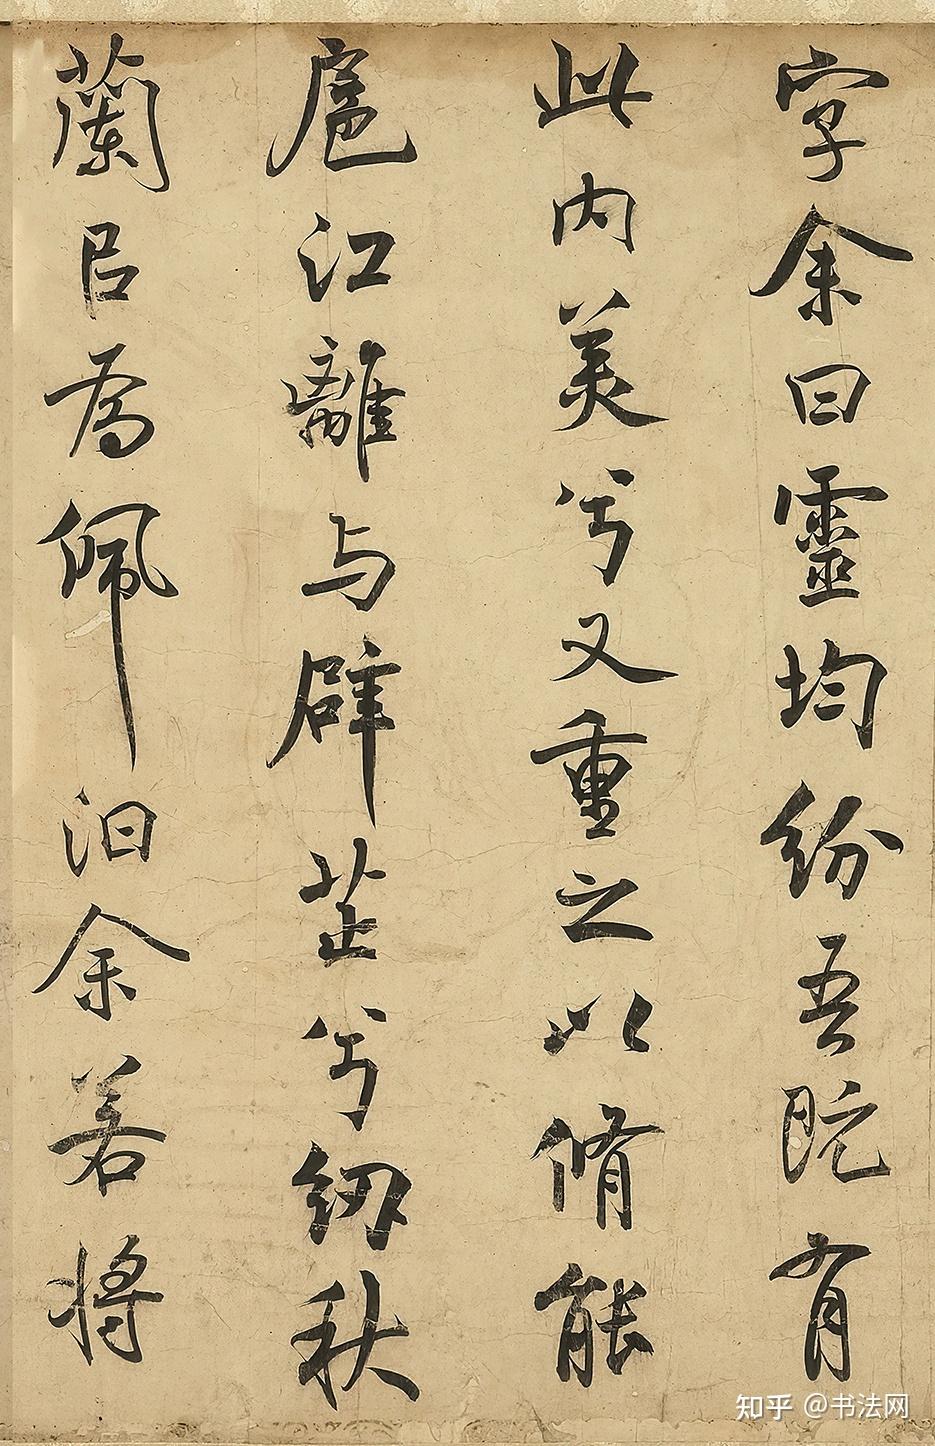 字余曰靈均紛吾既有
此内美兮又重之以脩能
扈江離与辟芷兮紉秋
蘭㠯為佩汨余若将
知乎 @书法网